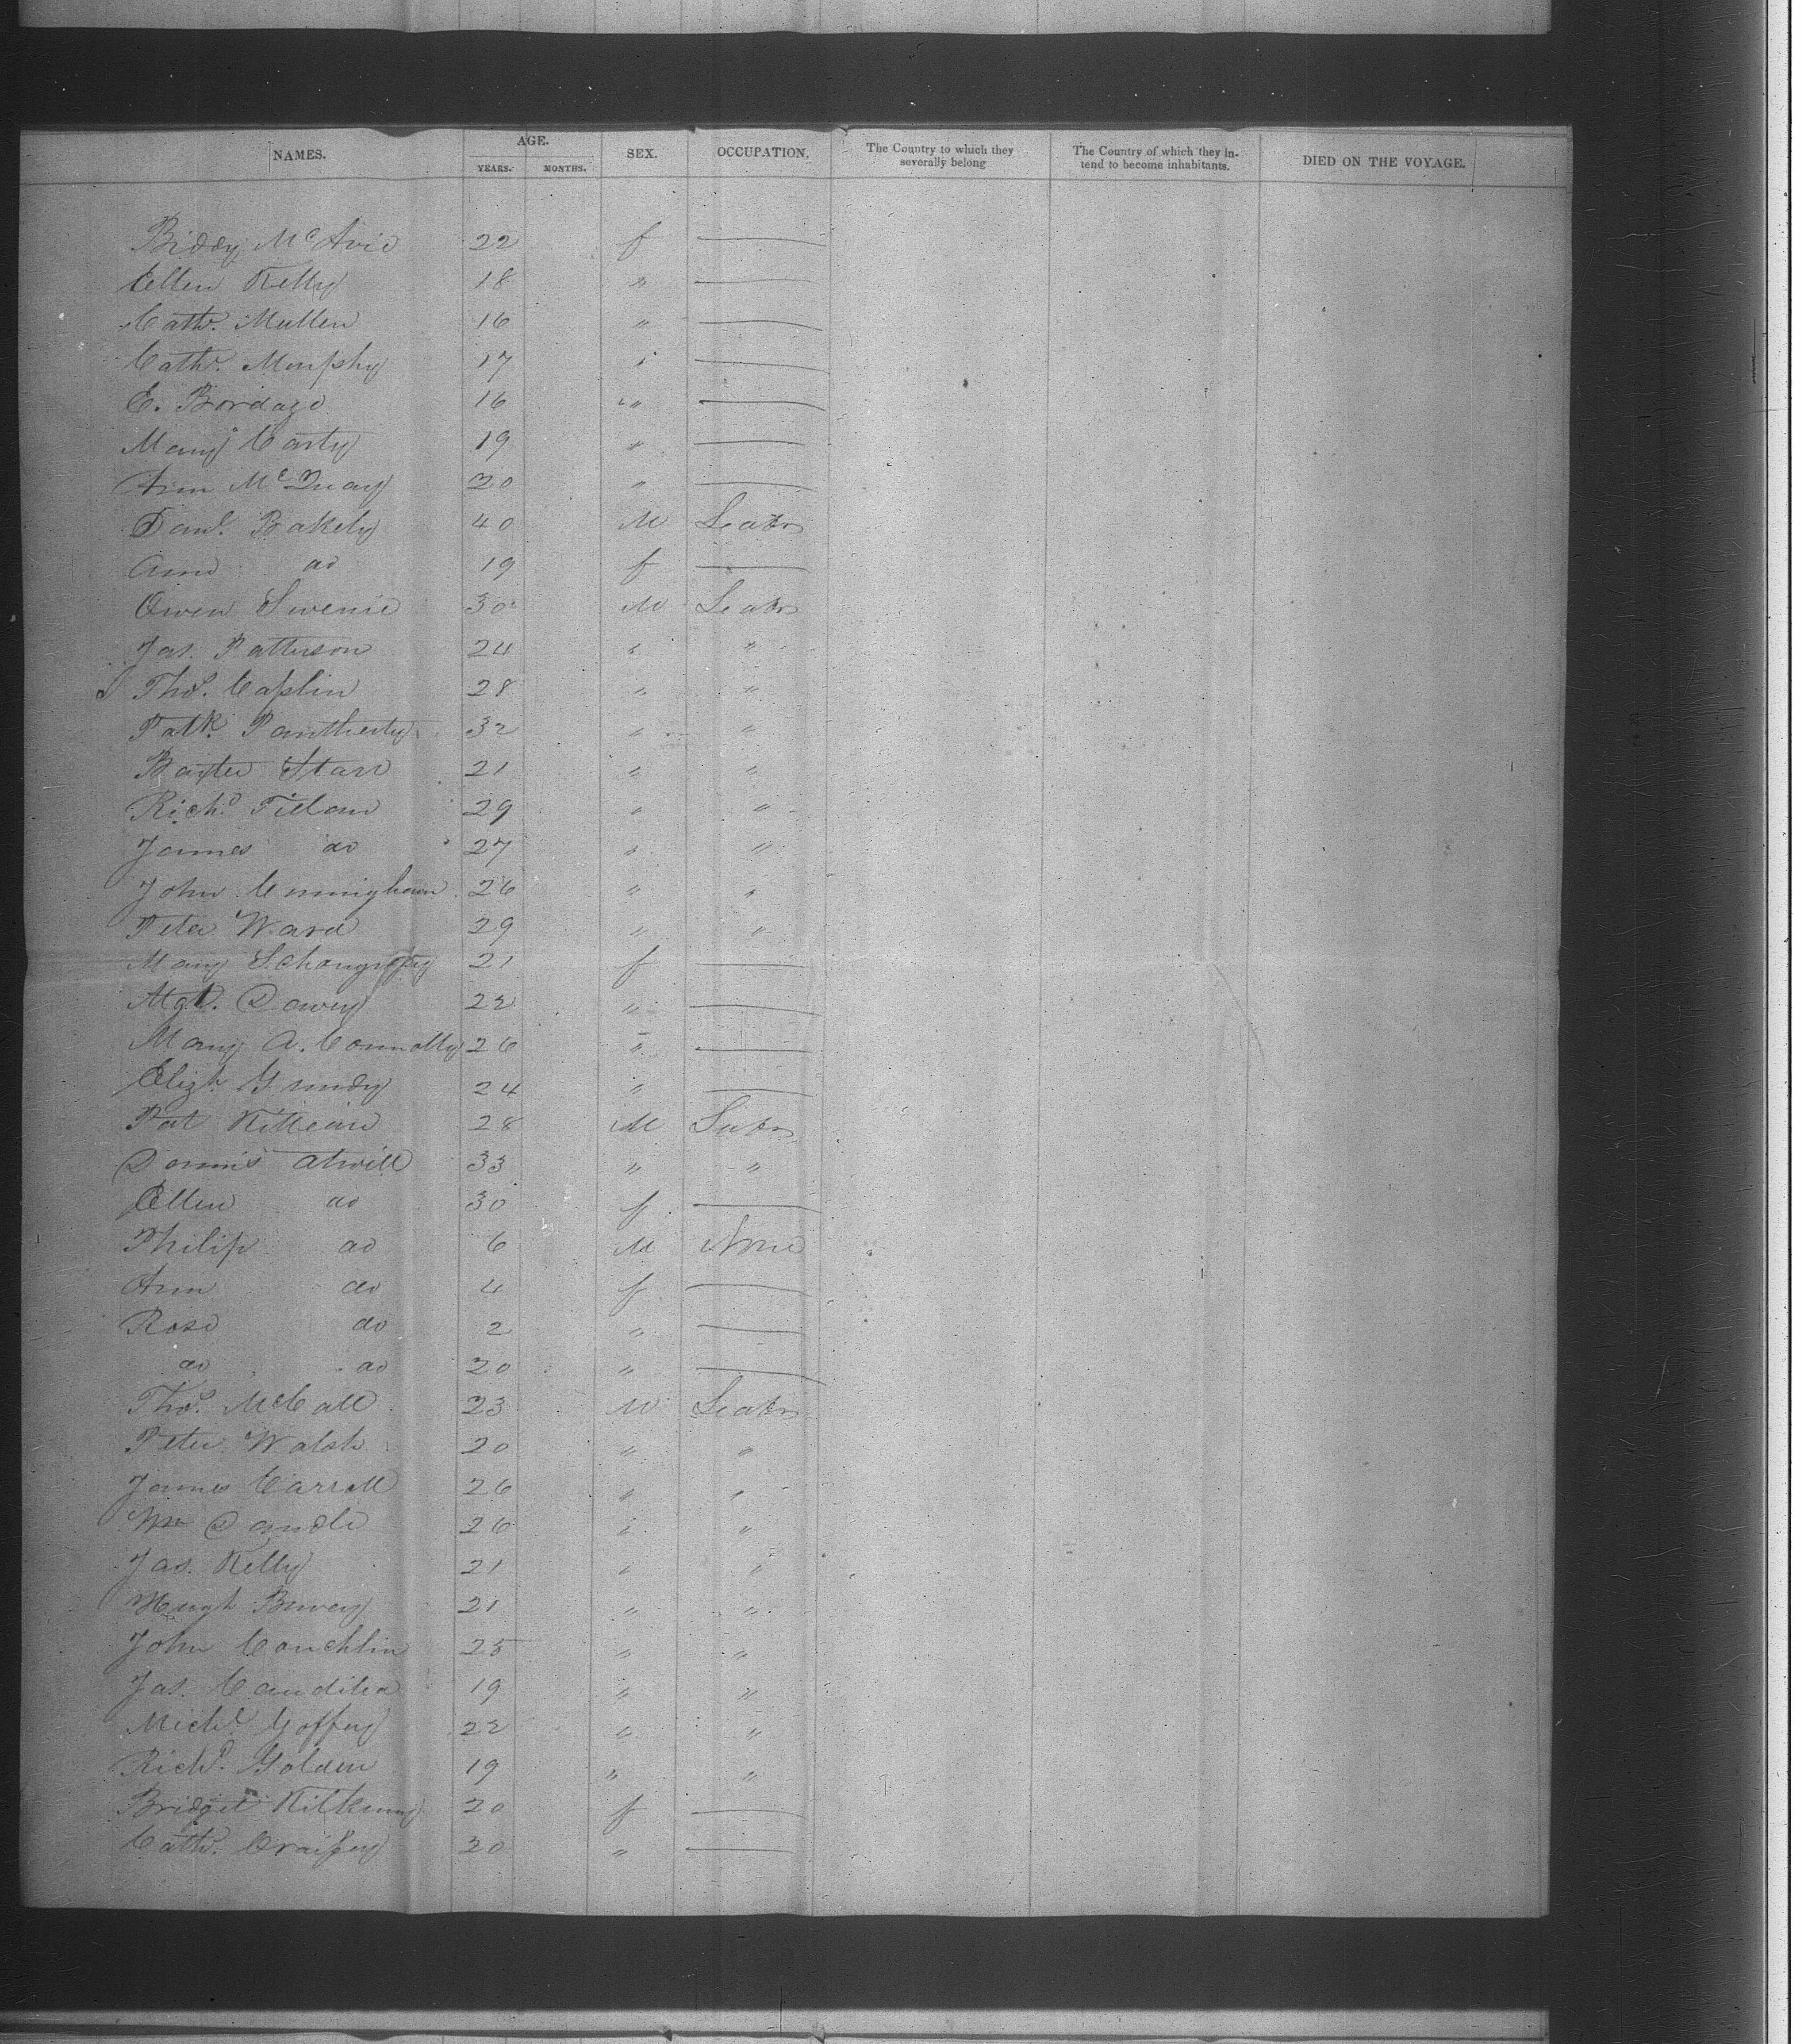 NAMES. AGE. SEX. OCCUPATION. The Country to which they severally belong The Country of which they intend to become inhabitants. DIED ON THE VOYAGE.
YEARS. MONTHS.
Biddy McAvie 22 f
Ellen Kelly 18 "
Cath. Mullen 16 "
Cath. Murphy 17 "
E. Bordage 16 "
Mary Carty 19 "
Ann McQuay 20 "
Danl. Bakely 40 M
Ann do 19 f
Owen Swenie 30 M
Jas. Patterson 24 " "
Thos. Caslin 28 " "
Patk. 32 " "
Baxter Starr 21 " "
Richd. 29 " "
James do 27 " "
John Cunningham 26 " "
Peter Ward 29 " "
Mary 21 f
Mgt. Davey 22 "
Mary A. Connolly 26 "
Elizh. Grundy 24 "
Pat Killean 28 M
Dennis Atwill 33 " "
Ellen do 30 f
Philip do 6 M None
Ann do 4 f
Rose do 2 "
do do 20 "
Thos. McCall 23 M
Peter Walsh 20 " "
James Carroll 26 " "
Wm 26 " "
Jas. Kelly 21 " "
Hugh 21 " "
John Couchlin 25 " "
Jas. 19 " "
Michl. Goffey 22 " "
Richd. Golden 19 " "
Bridget Kilkenny 20 f
Cath. 20 "